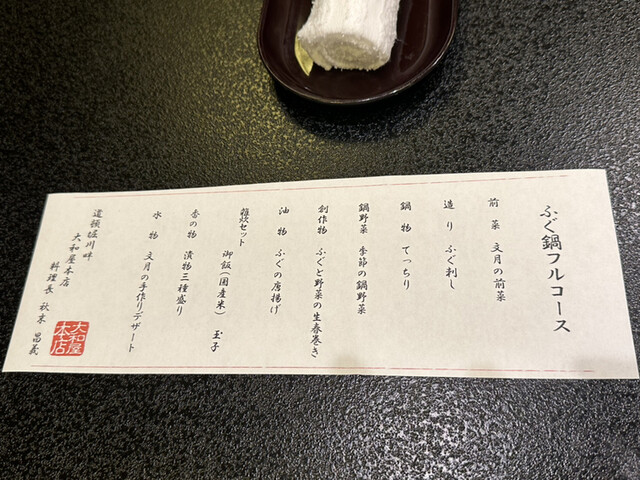 ふぐ鍋フルコース
前菜 文月の前菜
造り ふぐ刺し
鍋物 てっちり
鍋野菜 季節の鍋野菜
創作物 ふぐと野菜の生春巻き
油物 ふぐの唐揚げ
雑炊セット
御飯(国産米) 玉子
香の物 漬物三種盛り
水物 文月の手作りデザート
道頓堀川畔
大和屋本店
料理長 秋末 昌義
大和屋
本店